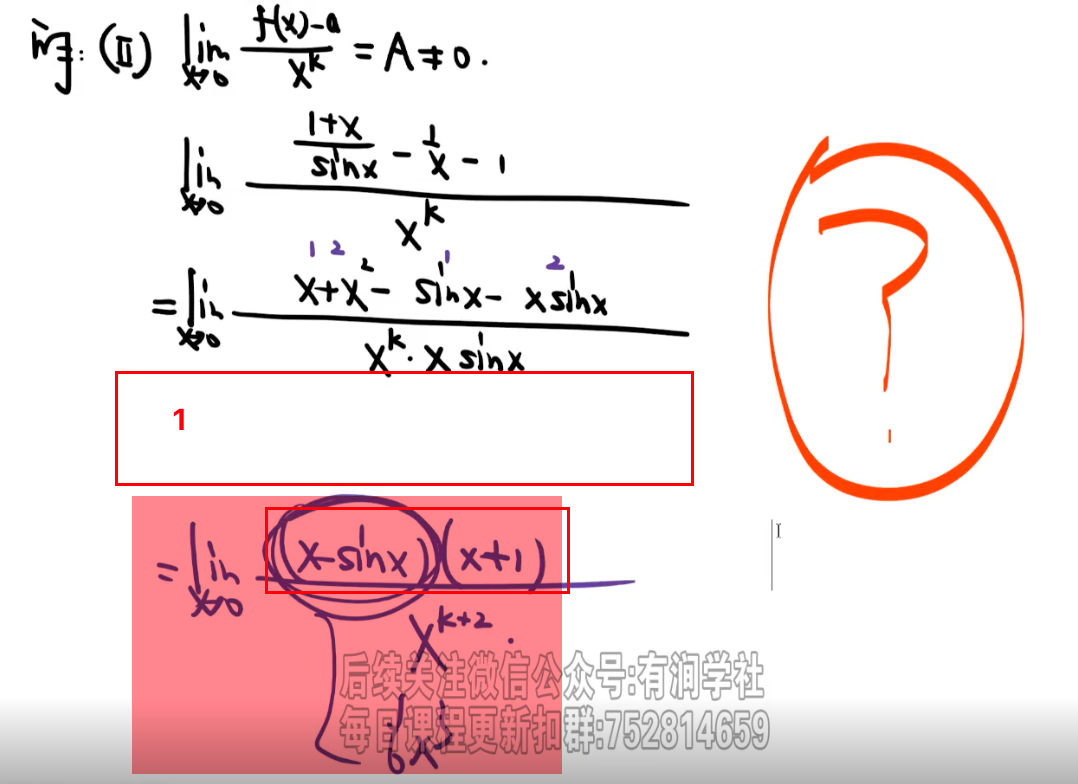 问: (Ⅱ) lim x→0 (f(x)-a)/x^k = A ≠ 0.
lim x→0 ((1+x)/sinx - 1/x - 1)/x^k
1 2 1 2
= lim x→0 (x+x² - sinx - xsinx)/(x^k · x sinx)
1
= lim x→0 (x-sinx)(x+1)/x^(k+2) .
?
后续关注微信公众号:有润学社
每日课程更新扣群:752814659